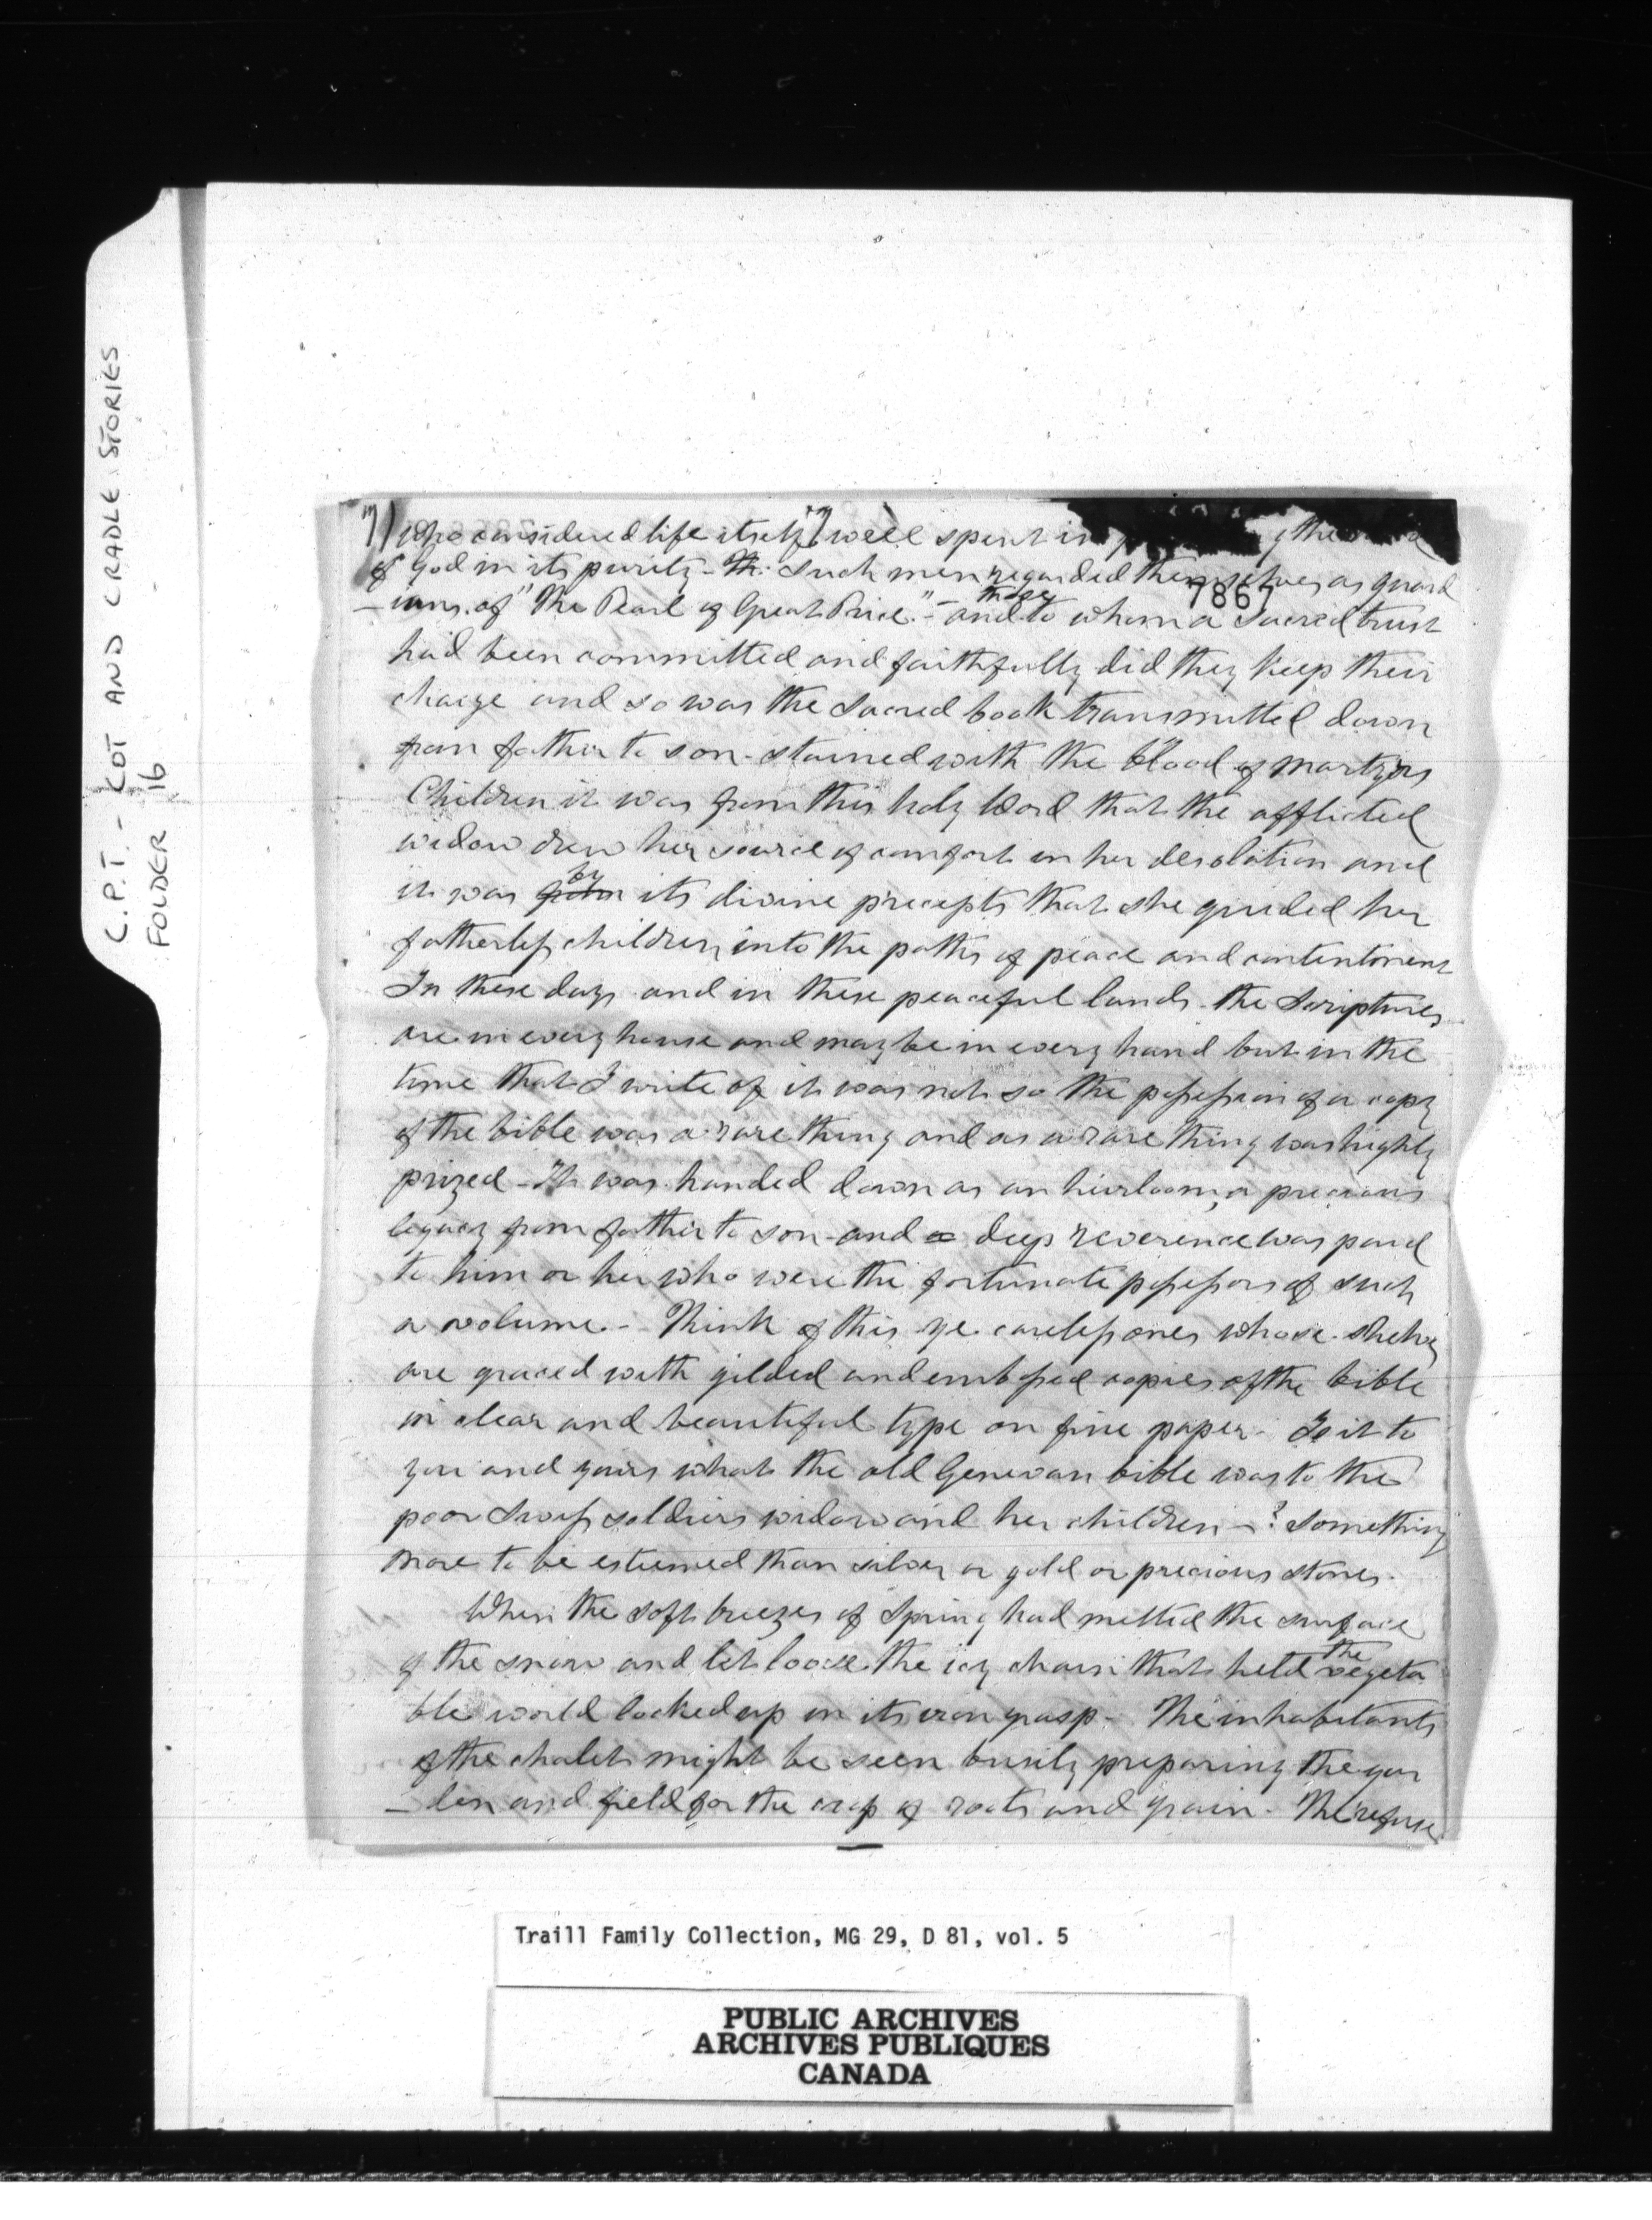 C.P.T. - COT AND CRADLE STORIES
FOLDER 16
7) who considered life itself well spent in the
of God in its purity - Th. Such men regarded themselves as guard
7867
- ians of "The Pearl of Great Price" - and to whom a Sacred trust
had been committed and faithfully did they keep their
charge and so was the Sacred book transmitted down
from father to son - stained with the blood of martyrs
Children it was from this holy Word that the afflicted
widow drew her source of comfort in her desolation and
by
it was from its divine precepts that she guided her
fatherless children into the paths of peace and contentment
In these days and in these peaceful lands the Scriptures
are in every house and may be in every hand but in the
time that I write of it was not so the possession of a copy
of the bible was a rare thing and as a rare thing was highly
prized - It was handed down as an heirloom, a precious
legacy from father to son - and a deep reverence was paid
to him or her who were the fortunate possessors of such
a volume - Think of this ye careless ones whose shelves
are graced with gilded and embossed copies of the bible
in clear and beautiful type on fine paper. Is it to
you and yours what the old Genevan bible was to the
poor Swiss soldiers widow and her children - ? Something
more to be esteemed than silver or gold or precious stones.
When the soft breezes of Spring had melted the surface
the
of the snow and let loose the icy chain that held vegeta
ble world locked up in its iron grasp - The inhabitants
of the chalet might be seen busily preparing the gar
- den and field for the crop of roots and grain. The refuse
Traill Family Collection, MG 29, D 81, vol. 5
PUBLIC ARCHIVES
ARCHIVES PUBLIQUES
CANADA